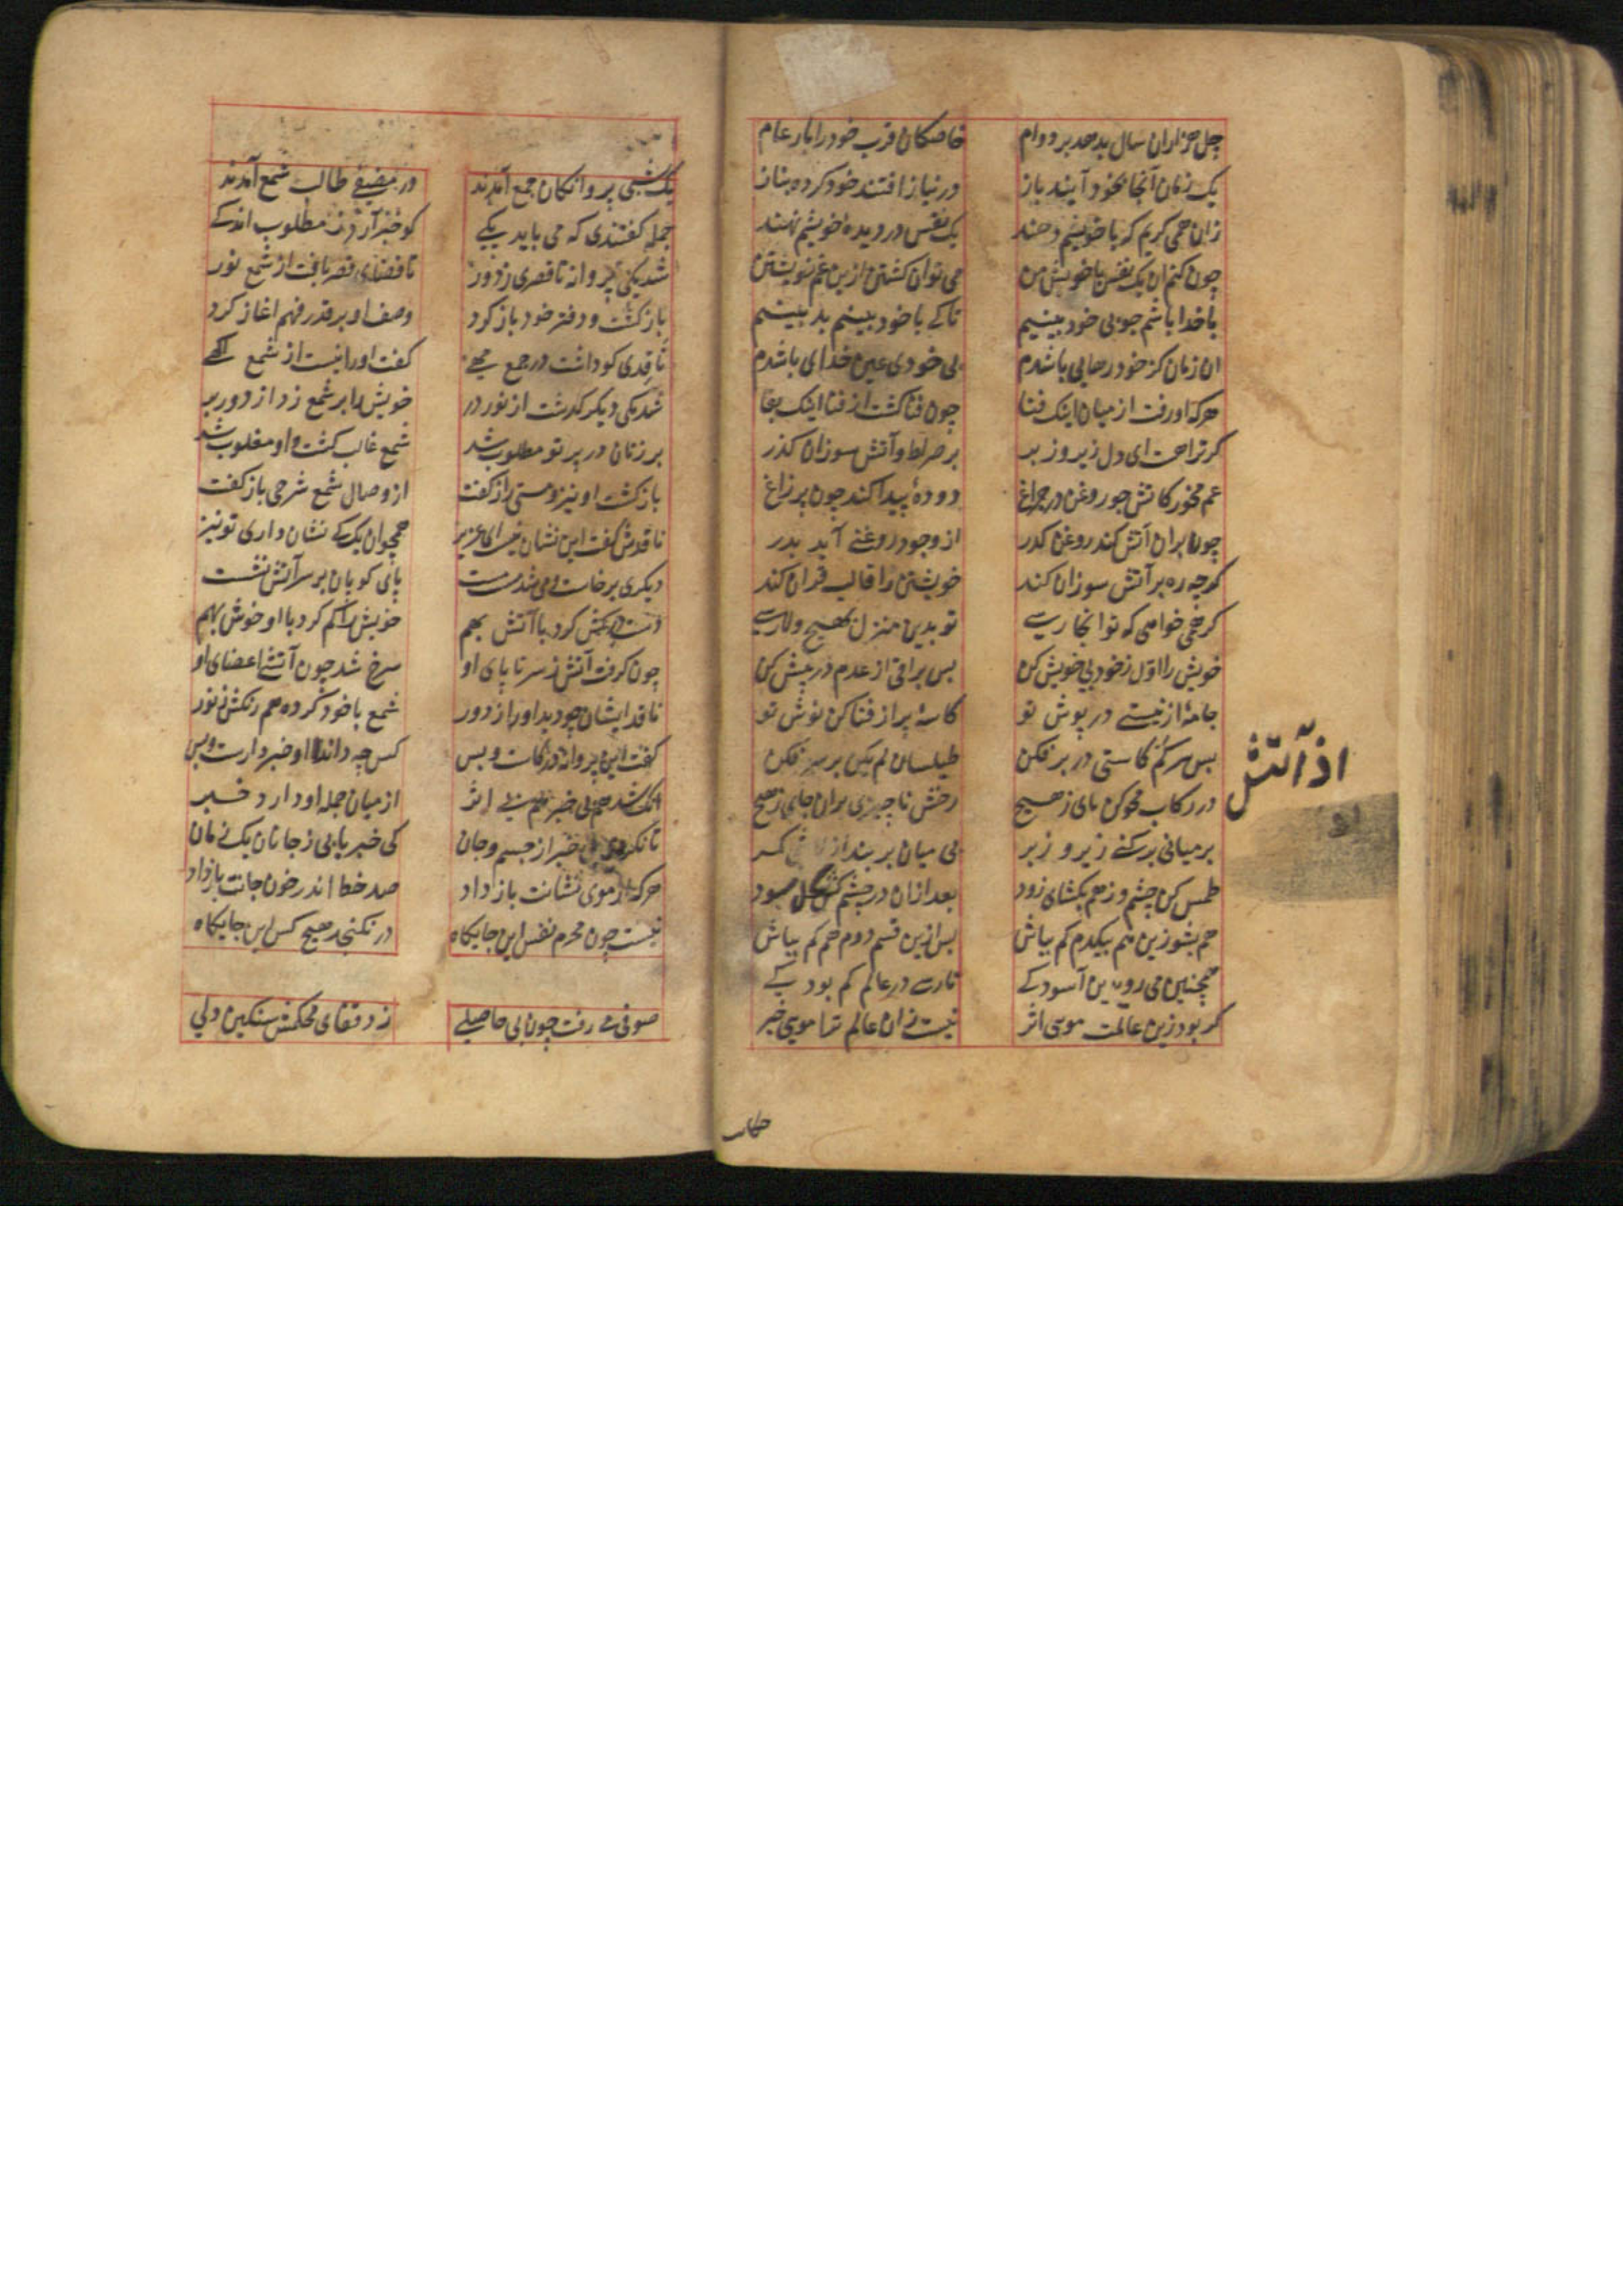 چل هزاران سال بد حد بر دوام خاصکان قرب خود را بار عام
یک زمان آنجا بخود آیند باز در نیاز افتند خود کرده بناز
زان همی کریم که با خویشم دهند یک نفس در دیده خویشم نهند
چون کنم ان یک نفس با خویش من می توان کشتن ازین غم خویشتن
با خدا باشم چو بی خود بینیم تا کے با خود بینیم بد بینیم
ان زمان کز خود رهایی باشدم بی خودی عین خدای باشدم
هرکه او رفت از میان اینک فنا چون فنا کشت از فنا اینک بقا
کر ترا هست ای دل زیر و زبر بر صراط و آتش سوزان کذر
غم مخور کاتش چو روغن در چراغ دودهٔ پیدا کند چون پر زاغ
چون بران آتش کند روغن کذر از وجود روغنے آید بدر
کرچه ره بر آتش سوزان کند خویشتن را قالب قران کند
کر همی خواهی که تو انجا رسے تو بدین منزل بهیچ ولا رسے
خویش را اول ز خود بی خویش کن بس براقی از عدم در پیش کن
جامهٔ از نیستے در پوش تو کاسهٔ پر از فنا کن نوش تو
بس سر کم کاستی در بر فکن طیلسان لم یکن بر سر فکن
در رکاب محو کن پای ز هیچ رخش ناچیزی بران جای ز هیچ
بر میانی بر کنے زیر و زبر بی میان بر بند از کمر
طمس کن چشم و زهم بکشای زود بعد ازان در چشم کش کحل
کم بشو زین هم بیکدم کم بباش بس ازین قسم دوم هم کم بباش
همچنین می رو بدین آسودکے تا رسے در عالم کم بودکے
کر بود زین عالمت مویی اثر نیست زان عالم ترا مویی خبر
از آتش
یک شبی پروانکان جمع آمدند در مضیفے طالب شمع آمدند
جمله کفتندی که می باید یکے کو خبر آرد ز مطلوب اندکے
شد یکی پروانه تا قصری ز دور تا فضای قصر یافت از شمع نور
باز کشت و دفتر خود باز کرد وصف او بر قدر فهم اغاز کرد
ناقدی کو داشت در جمع کفت اورا نیست از شمع اکهے
شد یکی دیکر کذشت از نور در خویش را بر شمع زد از دور بر
بر زنان در پرتو مطلوب شد شمع غالب کشت و او مغلوب شد
باز کشت او نیز و مستی راز کفت از وصال شمع شرحی باز کفت
ناقدش کفت این نشان نیست ای عزیز همچو ان یک کے نشان داری تو نیز
دیکری برخاست می شد مست مست پای کوبان بر سر آتش نشست
دست در کش کرد با آتش بهم خویش را کم کرد با او خوش بهم
چون کرفت آتش ز سر تا پای او سرخ شد چون آتشے اعضای او
ناقد ایشان چو دید او را ز دور شمع با خود کرده هم رنکش ز نور
کفت این پروانه در کارست و بس کس چه داند او خبردارست و بس
انک شد هم بی خبر هم بے اثر از میان جمله او دارد خبر
تا نکردی بی خبر از جسم و جان کی خبر یابی ز جانان یک زمان
هرکه از موی نشانت باز داد صد خط اندر خون جانت باز داد
نیست چون محرم نفس این جایکاه در نکنجد هیچ کس این جایکاه
صوفی مے رفت چون بی حاصلے زد قفای محکمش سنکین دلی